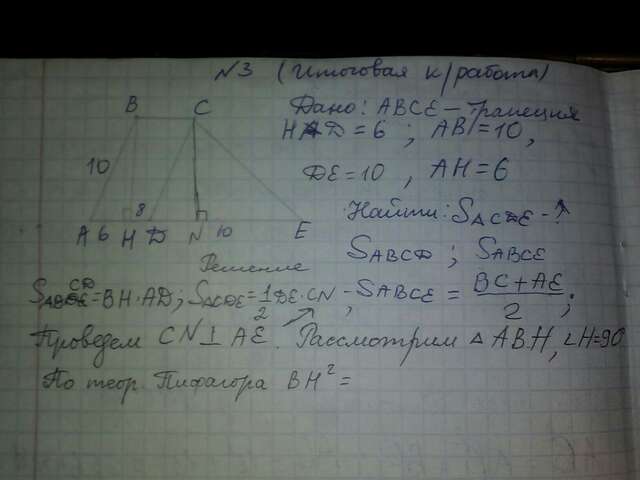 N3 (Итоговая к/работа)
B C
10
8
A 6 H D N 10 E
Дано: ABCE – трапеция
HD = 6 ; AB = 10,
DE = 10 , AH = 6
Найти: S△CDE - ?
SABCD ; SABCE
Решение
SABCD = BH · AD; S△CDE = 1/2 DE · CN - SABCE = BC + AE / 2 ;
Проведем CN ⊥ AE. Рассмотрим △ ABH, ∠H=90
По теор. Пифагора BH² =